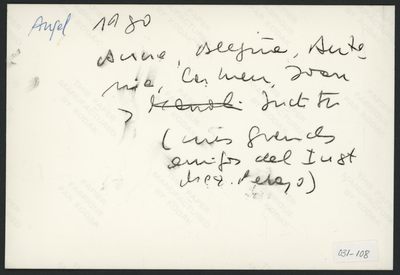 Angel 1980
Anna, Alegria, Anto
nia, Carmen, Joan
y Manoli Judith
(mis grandes
amigos del Inst
Mca. Pelayo)
031-108